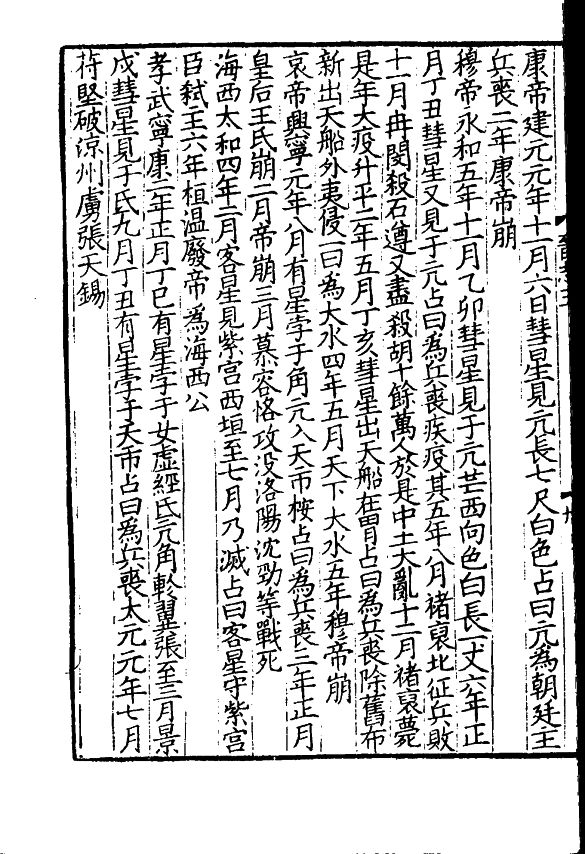 康帝建元元年十一月六日彗星見亢長七尺白色占曰亢為朝廷主
兵喪二年康帝崩
穆帝永和五年十一月乙卯彗星見于亢芒西向色白長一丈六年正
月丁丑彗星又見于亢占曰為兵喪疾疫其五年八月褚裒北征兵敗
十一月冉閔殺石遵又盡殺胡十餘萬人於是中土大亂十二月褚裒薨
是年大疫升平二年五月丁亥彗星出天船在胃占曰為兵喪除舊布
新出天船外夷侵一曰為大水四年五月天下大水五年穆帝崩
哀帝興寧元年八月有星孛于角亢入天市桉占曰為兵喪三年正月
皇后王氏崩二月帝崩三月慕容恪攻沒洛陽沈勁等戰死
海西太和四年二月客星見紫宮西垣至七月乃滅占曰客星守紫宮
臣弒王六年桓溫廢帝為海西公
孝武寧康二年正月丁巳有星孛于女虛經氐亢角軫翼張至三月景
戌彗星見于氐九月丁丑有星孛于天市占曰為兵喪太元元年七月
苻堅破涼州虜張天錫